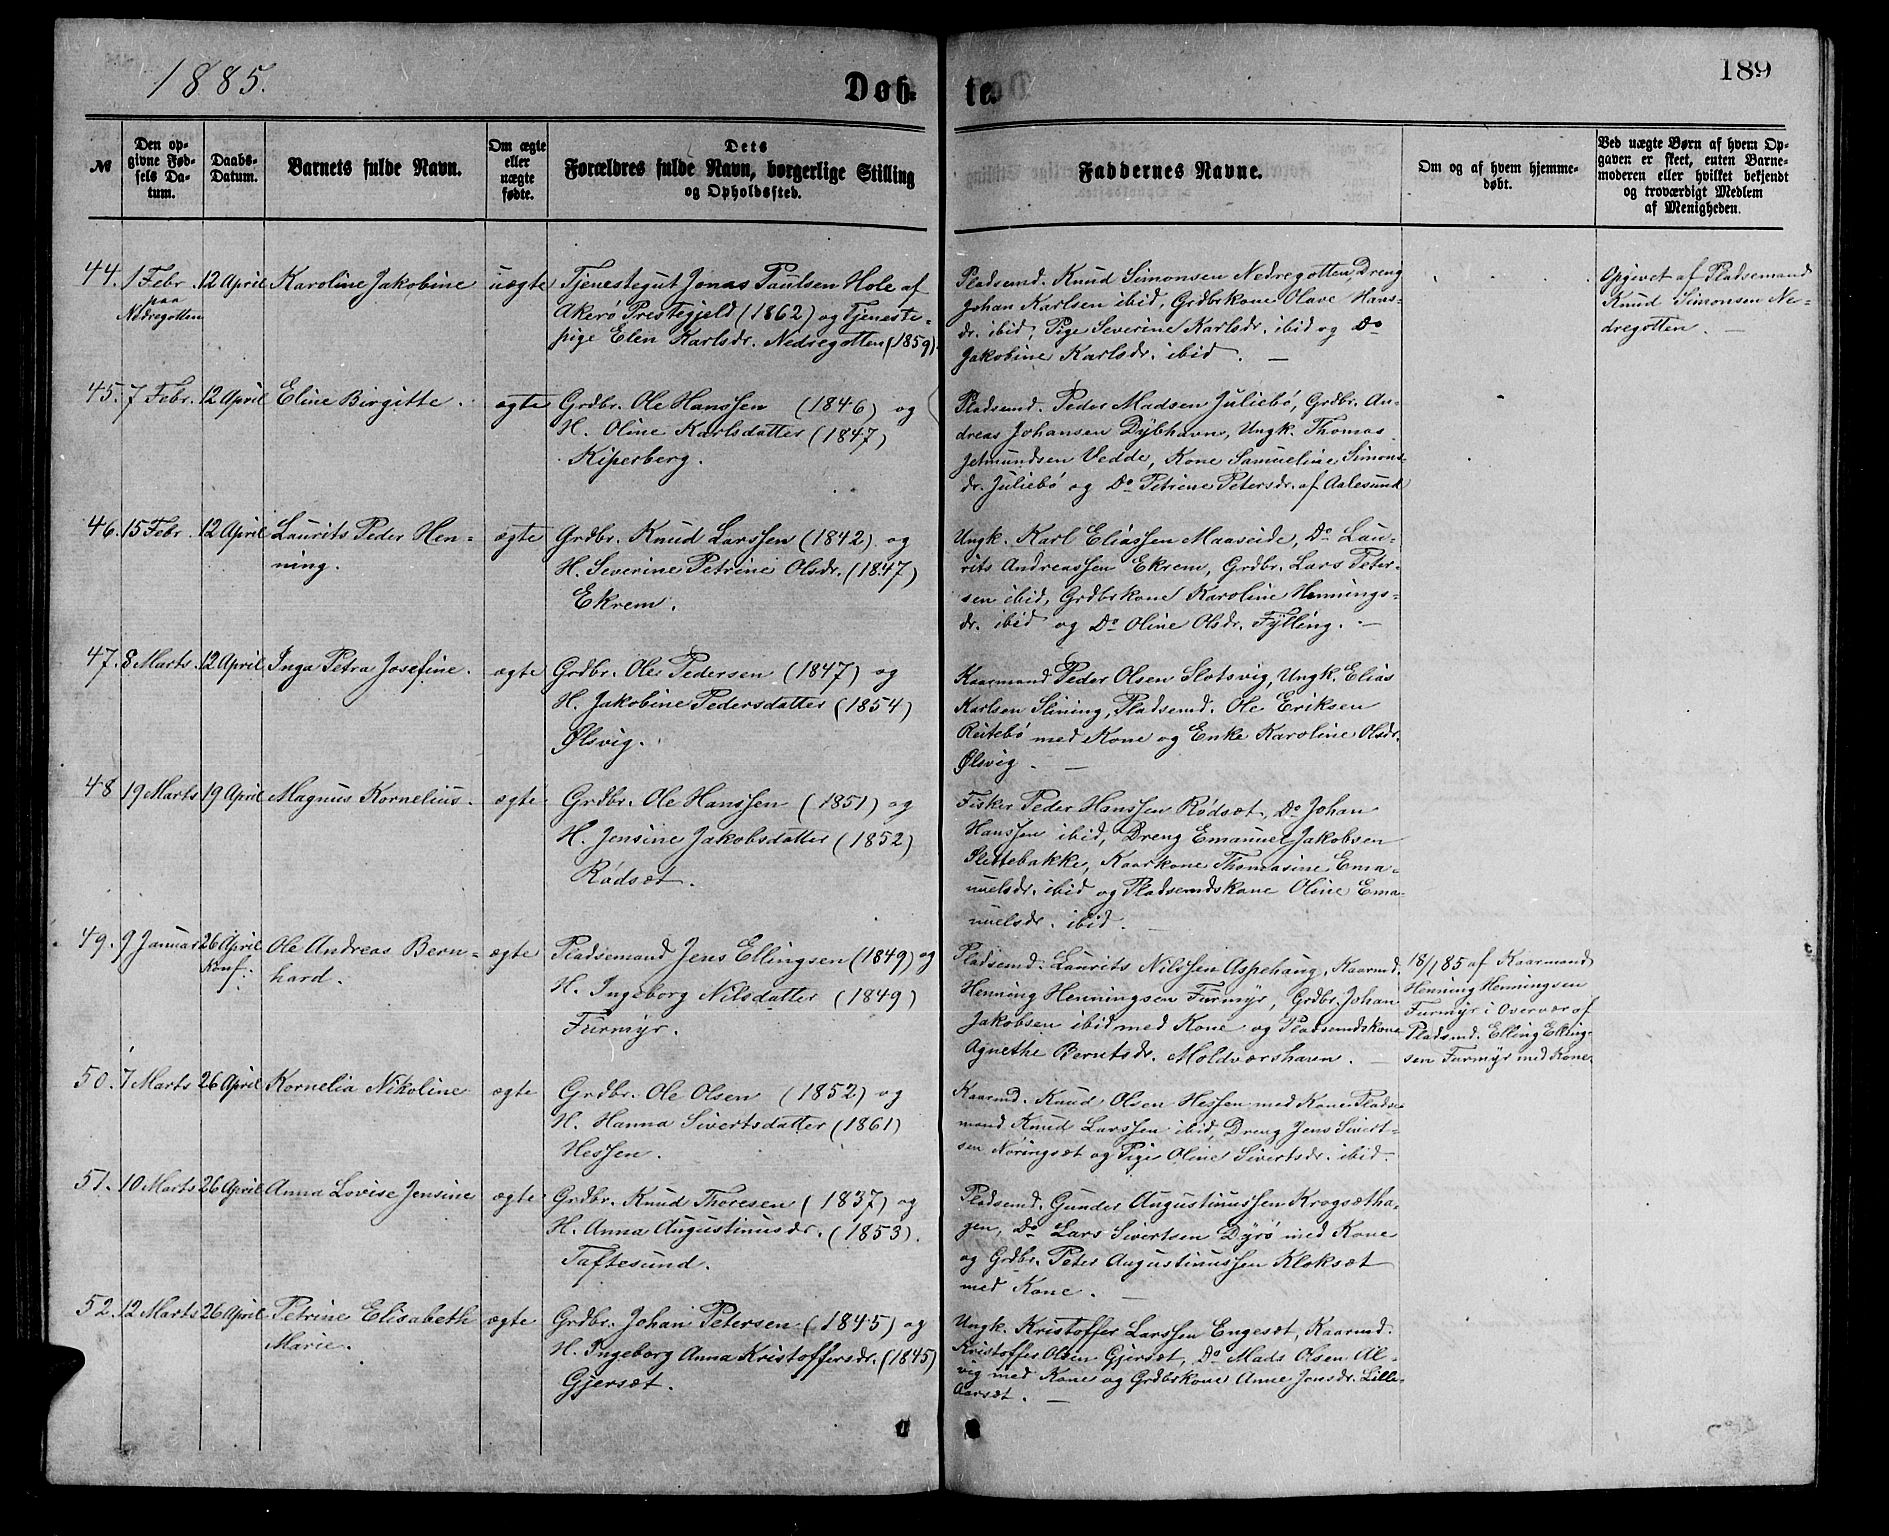 1885.
Døb-
te.
189
№
Den op-
givne Fød-
sels Da-
tum.
Daabs-
Datum.
Barnets fulde Navn.
Om ægte
eller
uægte
fødte.
Dets
Forældres fulde Navn, borgerlige Stilling
og Opholdssted.
Faddernes Navne.
Om og af hvem hjemme-
døbt.
Ved uægte Børn af hvem Op-
gaven er skeet, enten Barne-
moderen eller hvilket bekjendt
og troværdigt Medlem
af Menigheden.
44. 1 Febr. 12 April Karoline Jakobine uægte
paa
Nedregotten
Tjenestegut Jonas Paulsen Hole af
Akerø Prestegjeld (1862) og Tjeneste-
pige Elen Karlsdr. Nedregotten (1859)
Pladsemd. Knud Simonsen Nedregotten, Dreng
Johan Karlsen ibid, Grdbrkone Olave Hans-
dr. ibid, Pige Severine Karlsdr. ibid og Do
Jakobine Karlsdr. ibid. —
Opgivet af Pladsemand
Knud Simonsen Ne-
dregotten. —
45. 7 Febr. 12 April Eline Birgitte. ægte
Grdbr. Ole Hanssen (1846) og
H. Oline Karlsdatter (1847)
Kiperberg.
Pladsemd. Peder Madsen Juliebø, Grdbr. An-
dreas Johansen Dybhavn, Ungk. Thomas
Jetmundsen Vedde, Kone Samueline Simons-
dr. Juliebø og Do Petrine Petersdr. af Aalesund
46. 15 Febr. 12 April Laurits Peder Hen-
ning. ægte
Grdbr. Knud Larssen (1842) og
H. Severine Petrine Olsdr. (1847)
Ekrem.
Ungk. Karl Eliassen Maaseide, Do Lau-
rits Andreassen Ekrem, Grdbr. Lars Peter-
sen ibid, Grdbrkone Karoline Hennings-
dr. ibid og Do Oline Olsdr. Fylling. —
47. 8 Marts 12 April Inga Petra Josefine. ægte
Grdbr. Ole Pedersen (1847) og
H. Jakobine Pedersdatter (1854)
Ølsvig.
Kaarmand Peder Olsen Slotsvig, Ungk. Elias
Karlsen Slining, Pladsemd. Ole Eriksen
Reitebø med Kone og Enke Karoline Olsdr.
Ølsvig —
48 19 Marts 19 April Magnus Kornelius. ægte
Grdbr. Ole Hanssen (1851) og
H. Jensine Jakobsdatter (1852)
Rødsæt.
Fisker Peder Hanssen Rødsæt, Do Johan
Hanssen ibid, Dreng Emanuel Jakobsen
Slettebakke, Kaarkone Thomasine Ema-
nuelsdr. ibid og Pladsemdskone Oline Ema-
nuelsdr. ibid. —
49. 9 Januar 26 April Ole Andreas Bern-
Konf. hard. ægte
Pladsemand Jens Ellingsen (1849) og
H. Ingeborg Nilsdatter (1849)
Furmyr.
Pladsemd. Laurits Nilssen Aspehaug, Kaarmd.
Henning Henningsen Furmyr, Grdbr. Johan
Jakobsen ibid med Kone og Pladsemdskone
Agnethe Berntsdr. Moldværshavn. —
18/1 85 af Kaarmand
Henning Henningsen
Furmyr i Overvær af
Pladsmd. Elling Elling-
sen Furmyr med Kone.
50. 7 Marts 26 April Kornelia Nikoline ægte
Grdbr. Ole Olsen (1852) og
H. Hanna Sivertsdatter (1861)
Hessen.
Kaarmd. Knud Olsen Hessen med Kone, Pladse-
mand Knud Larssen ibid, Dreng Jens Sivert-
sen Nøringsæt og Pige Oline Sivertsdr. ibid.
51. 10 Marts 26 April Anna Lovise Jensine ægte
Grdbr. Knud Thoresen (1837) og
H. Anna Augustinusdr. (1853).
Taftesund.
Pladsemd. Gunder Augustinussen Krogsætha-
gen, Do Lars Sivertsen Dyrø med Kone
og Grdbr. Peter Augustinussen Kloksæt
med Kone. —
52. 12 Marts 26 April Petrine Elisabeth
Marie. ægte
Grdbr. Johan Petersen (1845) og
H. Ingeborg Anna Kristoffersdr. (1845)
Gjersæt.
Ungk. Kristoffer Larssen Engesæt, Kaarmd.
Kristoffer Olsen Gjersæt, Do Mads Olsen Al-
vig med Kone og Grdbrkone Anne Jonsdr. Lille-
Aarsæt. —